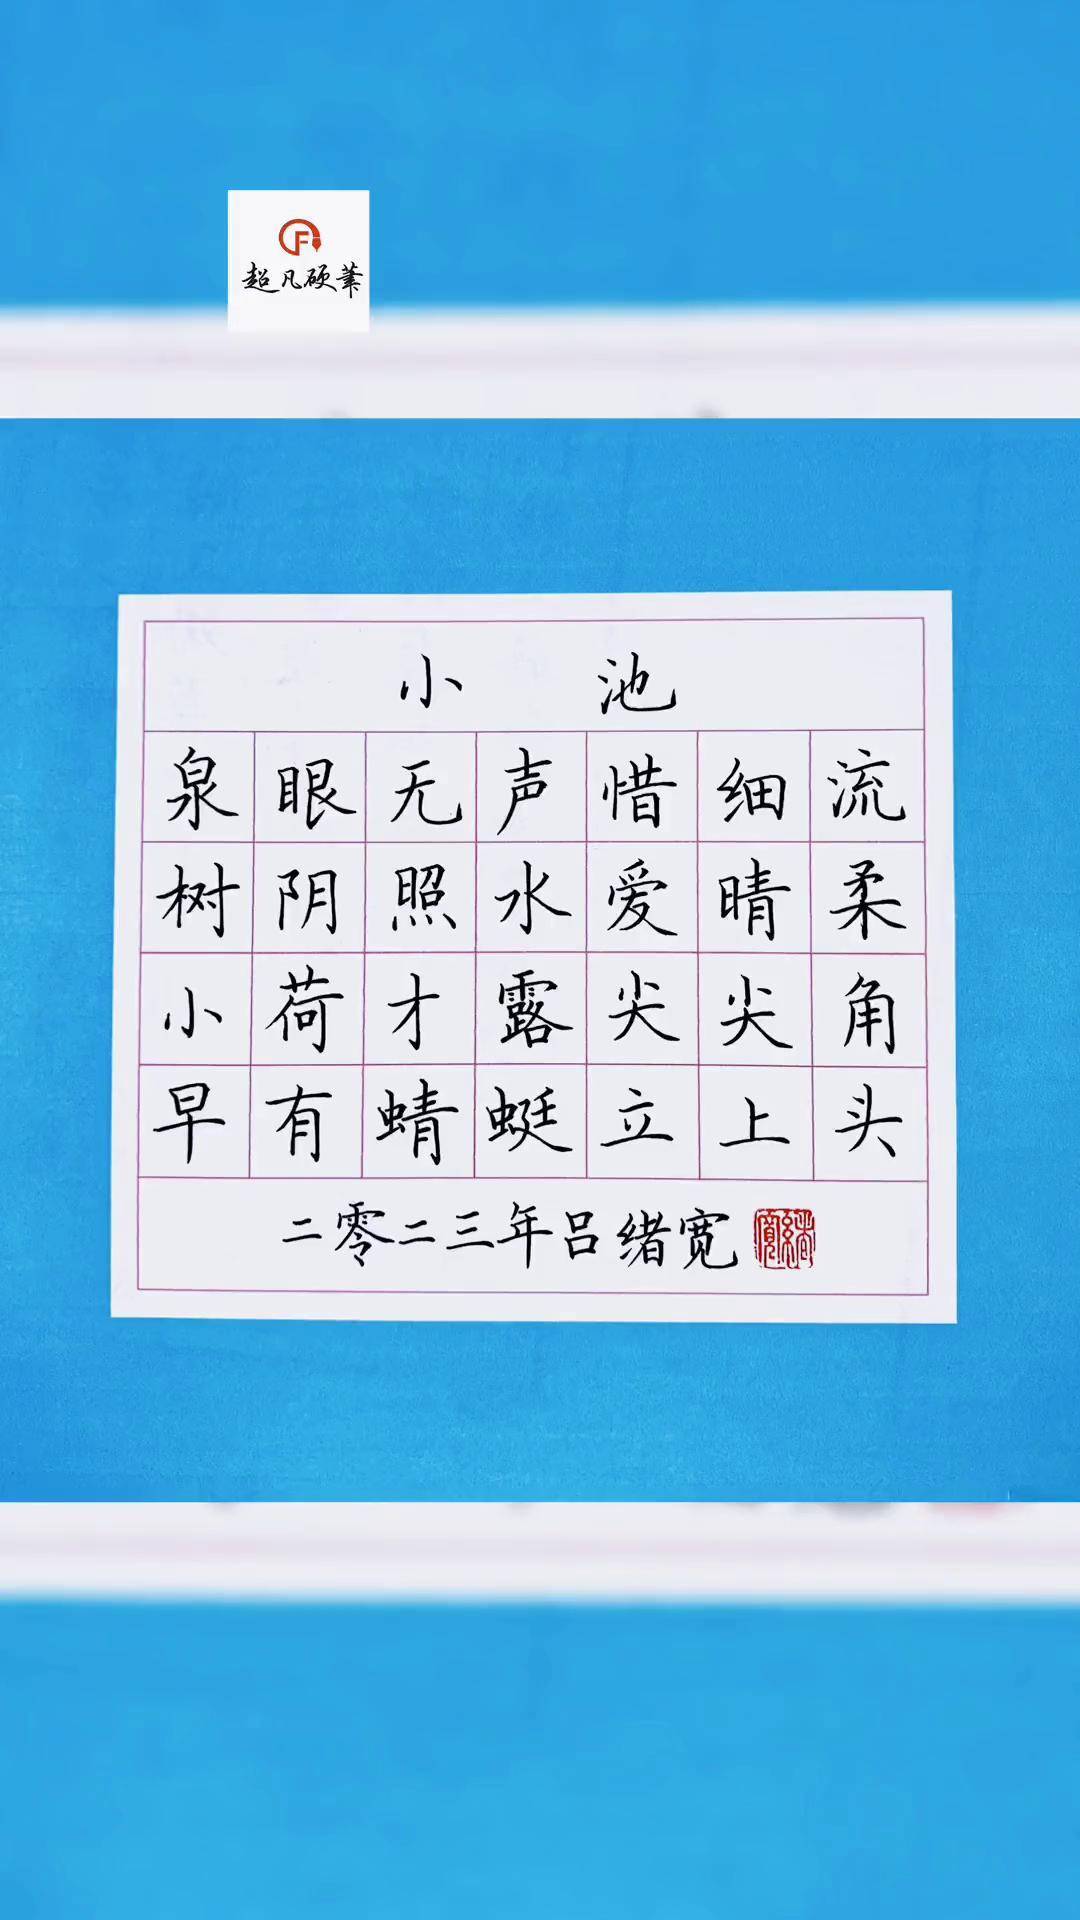 超凡硬筆
小池
泉眼无声惜细流
树阴照水爱晴柔
小荷才露尖尖角
早有蜻蜓立上头
二零二三年吕绪宽
绪宽